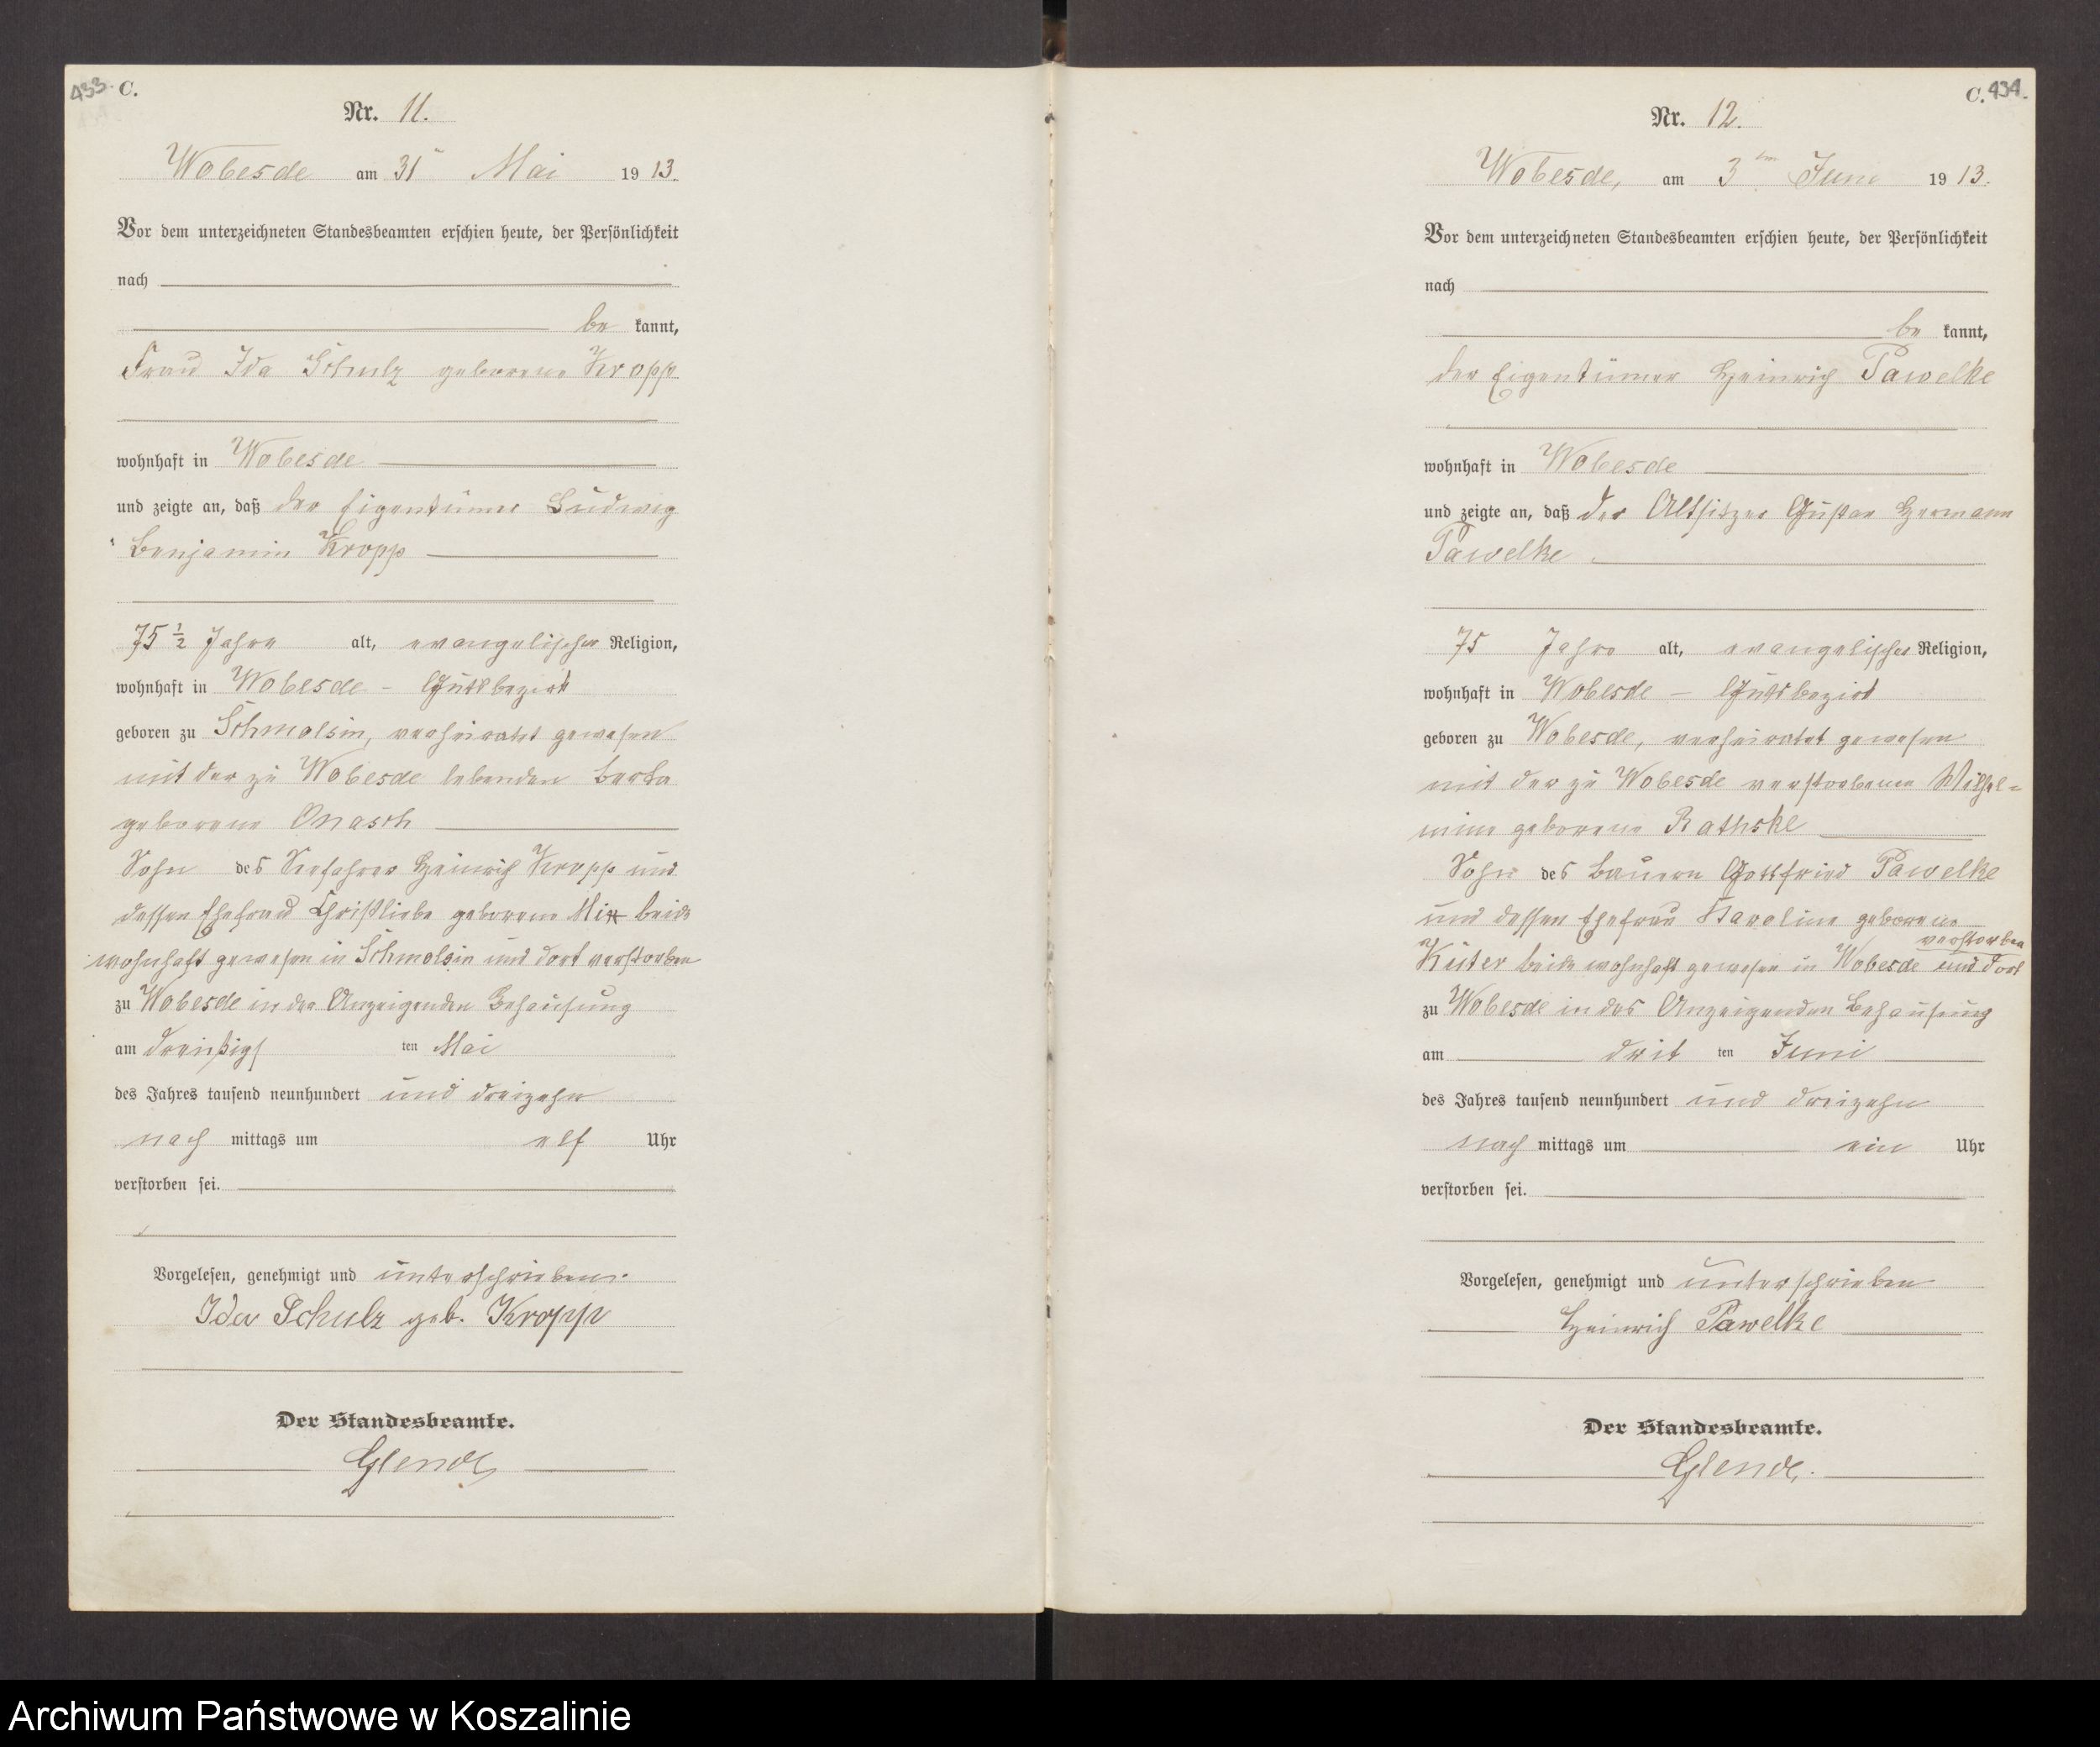 433. C.
Nr. 11.
Wobesde am 31 Mai 1913.
Vor dem unterzeichneten Standesbeamten erschien heute, der Persönlichkeit
nach
be kannt,
Frau Ida Schulz geborene Kropp
wohnhaft in Wobesde
und zeigte an, daß der Eigentümer Ludwig
Benjamin Kropp
75 1/2 Jahre alt, evangelischer Religion,
wohnhaft in Wobesde - Gutsbezirk
geboren zu Schmolsin, verheiratet gewesen
mit der zu Wobesde lebenden Berta
geborene Onasch
Sohn des Seefahrer Heinrich Kropp und
dessen Ehefrau Christliebe geborene beide
wohnhaft gewesen in Schmolsin und dort verstorben
zu Wobesde in der Anzeigenden Behausung
am dreißigs ten Mai
des Jahres tausend neunhundert und dreizehn
nach mittags um elf Uhr
verstorben sei.
Vorgelesen, genehmigt und unterschrieben.
Ida Schulz geb. Kropp
Der Standesbeamte.
C. 434.
Nr. 12.
Wobesde, am 3ten Juni 1913.
Vor dem unterzeichneten Standesbeamten erschien heute, der Persönlichkeit
nach
be kannt,
der Eigentümer Heinrich Pawelke
wohnhaft in Wobesde
und zeigte an, daß der Altsitzer Gustav Hermann
Pawelke
75 Jahre alt, evangelischer Religion,
wohnhaft in Wobesde - Gutsbezirk
geboren zu Wobesde, verheiratet gewesen
mit der zu Wobesde verstorbene Wilhel=
mine geborene Rathske
Sohn des Bauern Gottfried Pawelke
und dessen Ehefrau Karoline geborene
verstorben
Küter beide wohnhaft gewesen in Wobesde und dort
zu Wobesde in des Anzeigenden Behausung
am drit ten Juni
des Jahres tausend neunhundert und dreizehn
nach mittags um ein Uhr
verstorben sei.
Vorgelesen, genehmigt und unterschrieben
Heinrich Pawelke
Der Standesbeamte.
Archiwum Państwowe w Koszalinie